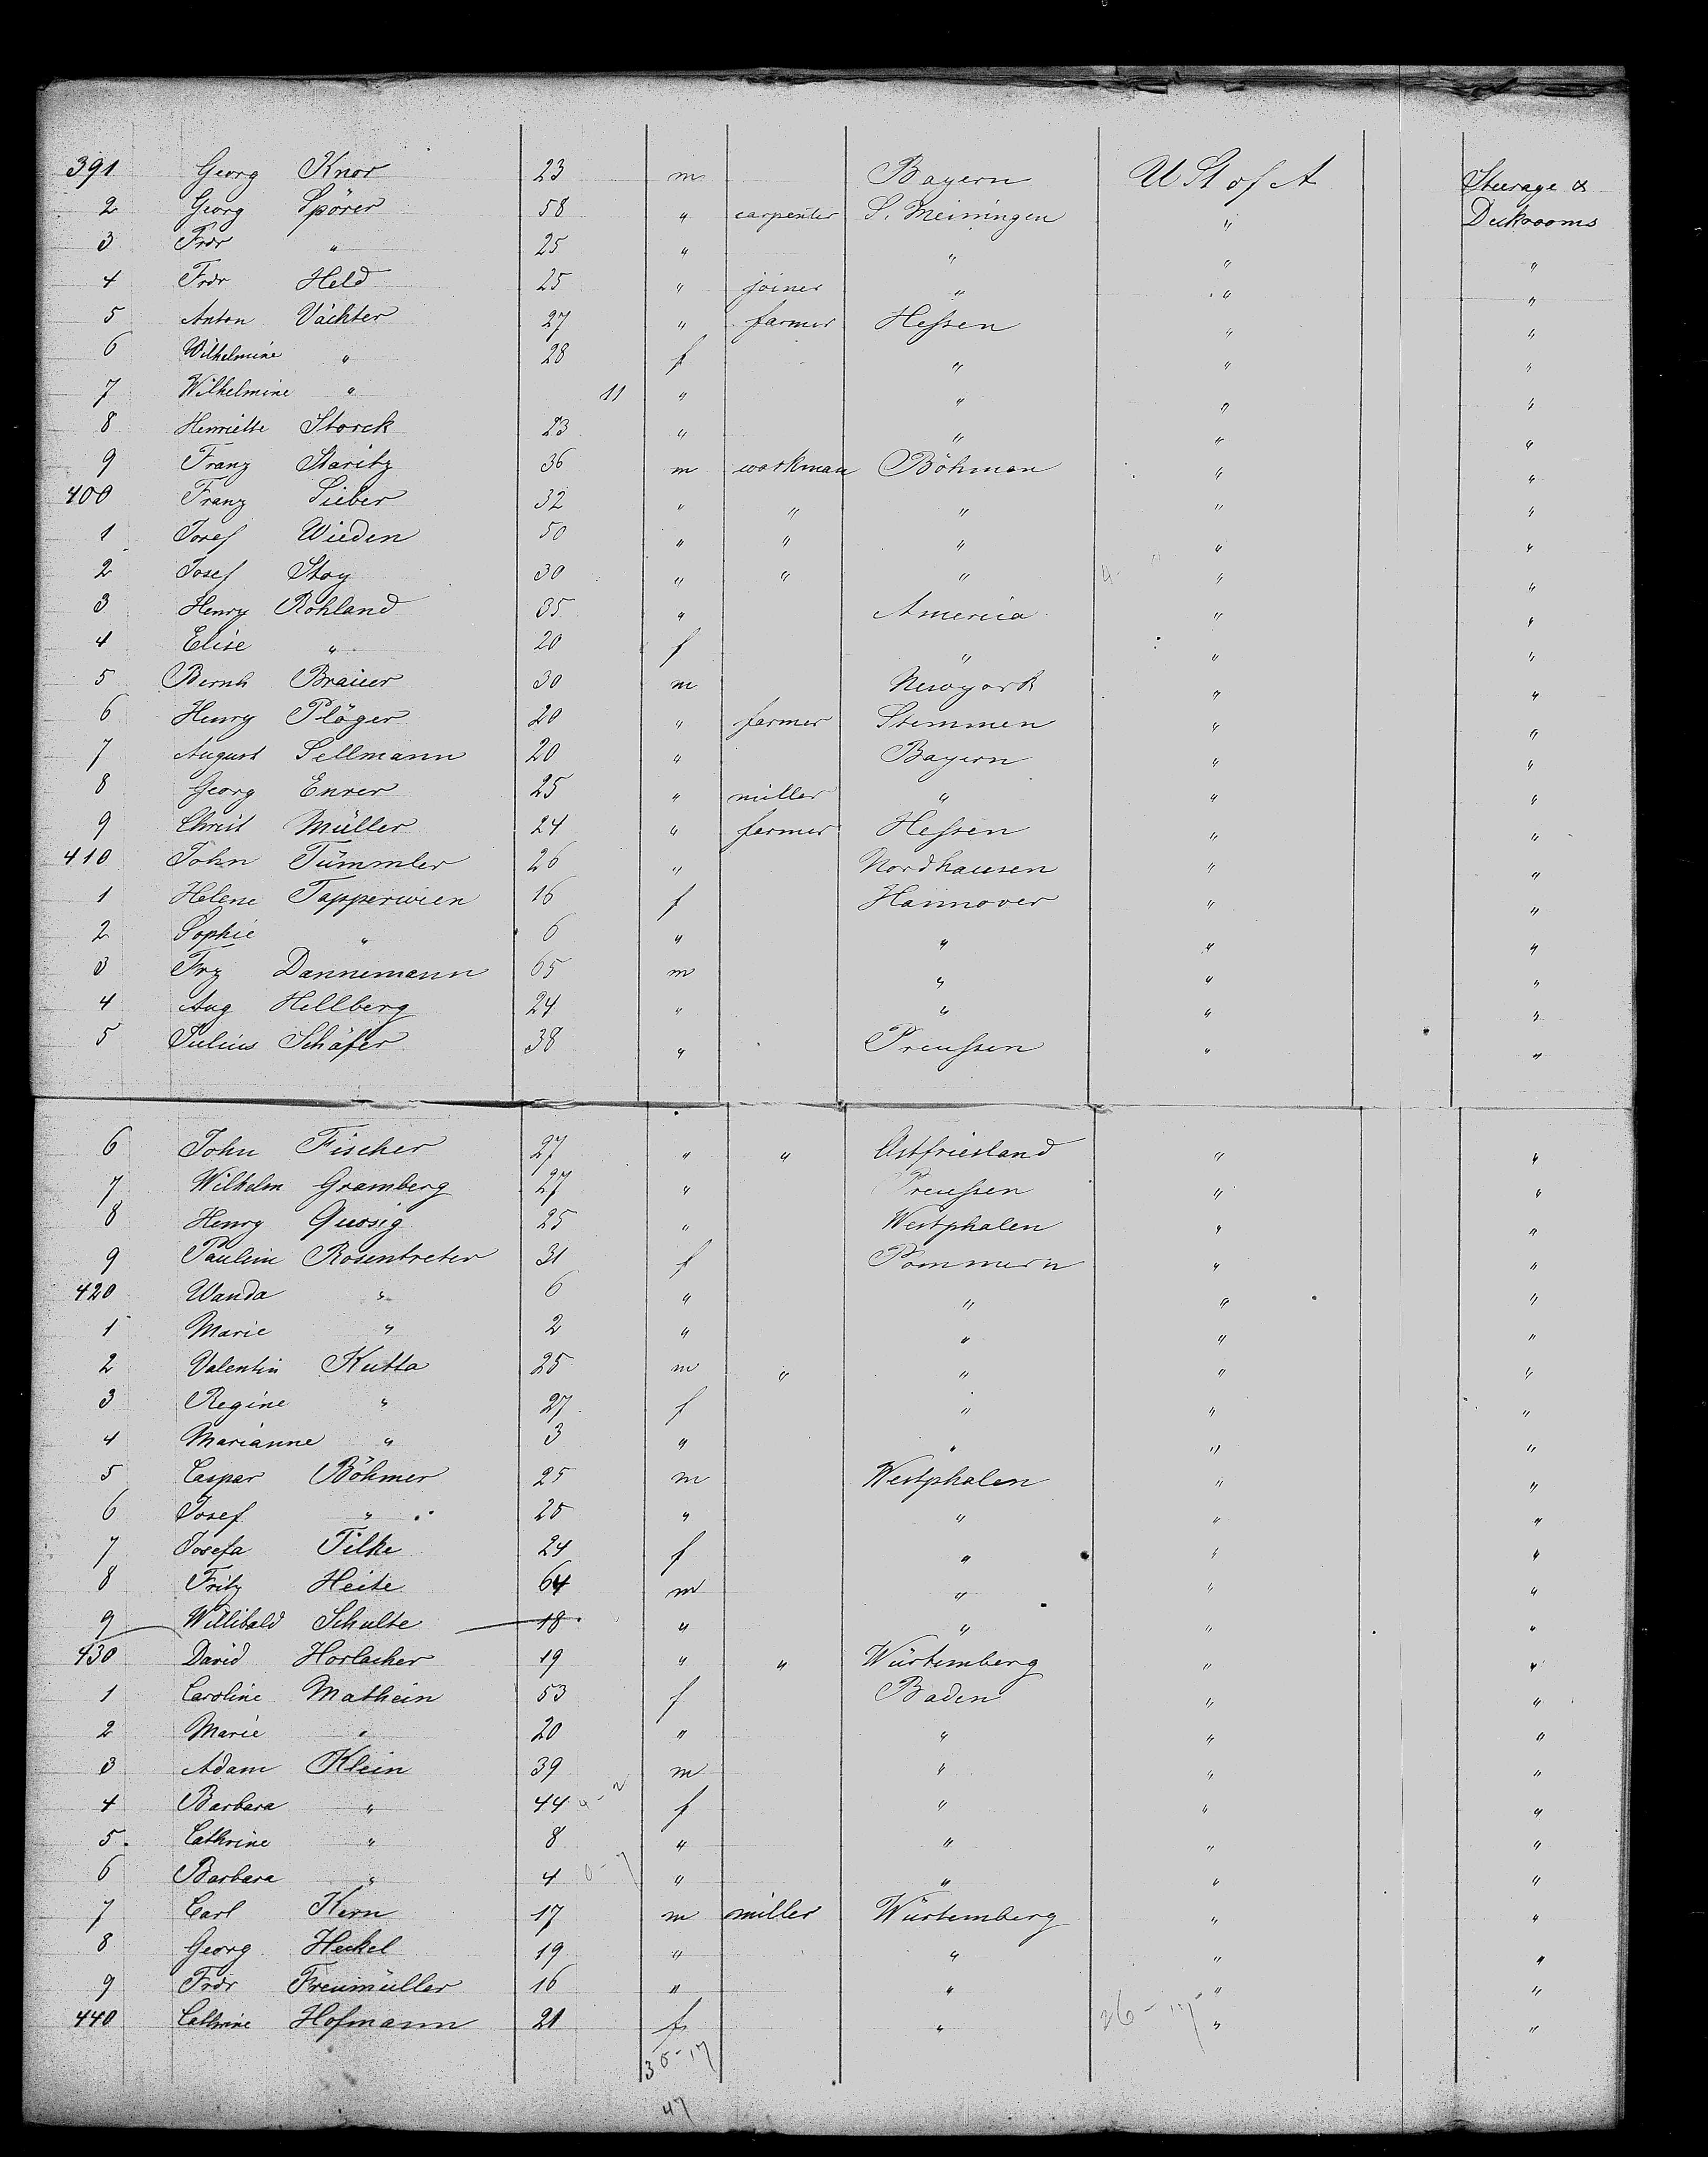 391 Georg Knor 23 m Bayern U St of A Steerage &
2 Georg Spörer 58 " carpenter S. Meiningen " Deckrooms
3 Frdr " 25 " " " "
4 Frdr Held 25 " joiner " " "
5 Anton Vächter 27 " farmer Hessen " "
6 Wilhelmine " 28 f " " "
7 Wilhelmine " 11 " " " "
8 Henriette Storck 23 " " " "
9 Franz Staritz 36 m workman Böhmen " "
400 Franz Sieber 32 " " " " "
1 Josef Wieden 50 " " " " "
2 Josef Stoy 30 " " " " "
3 Henry Rohland 35 " America " "
4 Elise " 20 f " " "
5 Bernh Brauer 30 m Newyork " "
6 Henry Plöger 20 " farmer Stemmen " "
7 August Sellmann 20 " Bayern " "
8 Georg Enrer 25 " miller " " "
9 Christ Müller 24 " farmer Hessen " "
410 John Tümmler 26 " Nordhausen " "
1 Helene Tapperwien 16 f Hannover " "
2 Sophie " 6 " " " "
3 Frz Dannemann 65 m " " "
4 Aug Hellberg 24 " " " "
5 Julius Schäfer 38 " Preussen " "
6 John Fischer 27 " " Ostfriesland " "
7 Wilhelm Gramberg 27 " Preussen " "
8 Henry Quosig 25 " Westphalen " "
9 Paulin Rosentreter 31 f Pommern " "
420 Wanda " 6 " " " "
1 Marie " 2 " " " "
2 Valentin Kutta 25 m " " " "
3 Regine " 27 f " " "
4 Marianne " 3 " " " "
5 Caspar Böhmer 25 m Westphalen " "
6 Josef " 25 " " " "
7 Josefa Tilke 24 f " " "
8 Fritz Heite 64 m " " "
9 Willibald Schulte 18 " " " "
430 David Horlacher 19 " " Würtemberg " "
1 Caroline Mathein 53 f Baden " "
2 Marie " 20 " " " "
3 Adam Klein 39 m " " "
4 Barbara " 44 f " " "
5 Cathrine " 8 " " " "
6 Barbara " 4 " " " "
7 Carl Kern 17 m miller Würtemberg " "
8 Georg Heckel 19 " " " "
9 Frdr Freumüller 16 " " " "
440 Cathrine Hofmann 21 f " 36-17 " "
30-17
47